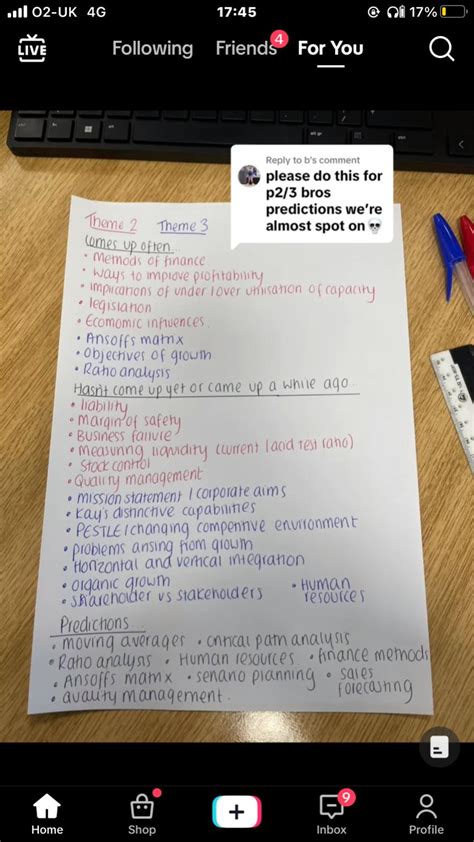 O2-UK 4G 17:45 17%
LIVE Following Friends 4 For You
Reply to b's comment
please do this for
p2/3 bros
predictions we're
almost spot on💀
Theme 2 Theme 3
Comes up often...
• Methods of finance
• Ways to improve profitability
• Implications of under/over utilisation of capacity
• legislation
• Economic influences
• Ansoffs matrix
• Objectives of growth
• Ratio analysis
Hasn't come up yet or came up a while ago...
• liability
• Margin of safety
• Business failure
• Measuring liquidity (current/acid test ratio)
• Stock control
• Quality management
• Mission statement/corporate aims
• Kay's distinctive capabilities
• PESTLE/changing competitive environment
• Problems arising from growth
• Horizontal and vertical integration
• Organic growth
• Shareholder vs stakeholders • Human resources
Predictions...
• Moving averages • critical path analysis
• Ratio analysis • Human resources • finance methods
• Ansoffs matrix • senario planning • sales forecasting
• Quality management
Home Shop Inbox 9 Profile